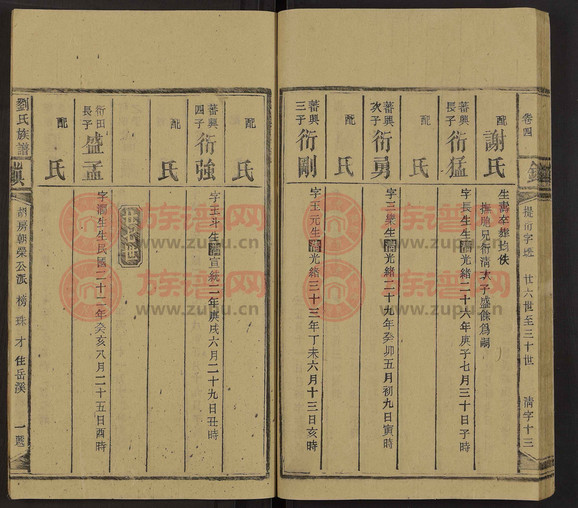 卷四
提衍字派 廿六世至三十世 清字十三
配 謝氏
生壽卒葬均佚
撫胞兄衍清次子盛餘爲嗣
蕃興長子 衍猛
字長生生清光緒二十六年庚子七月三十日子時
配 氏
蕃興次子 衍勇
字三榮生清光緒二十九年癸卯五月初九日寅時
配 氏
蕃興三子 衍剛
字王元生清光緒三十三年丁未六月十三日亥時
配 氏
蕃興四子 衍強
字王斗生清宣統二年庚戌六月二十九日丑時
配 氏
廿七世
衍田長子 盛孟
字潤生生民國二十二年癸亥八月二十五日酉時
配 氏
劉氏族譜
房朝榮公派 榜珠才 住岳溪 一
族谱网
www.zupu.cn
族谱网
www.zupu.cn
族谱网
www.zupu.cn
族谱网
www.zupu.cn